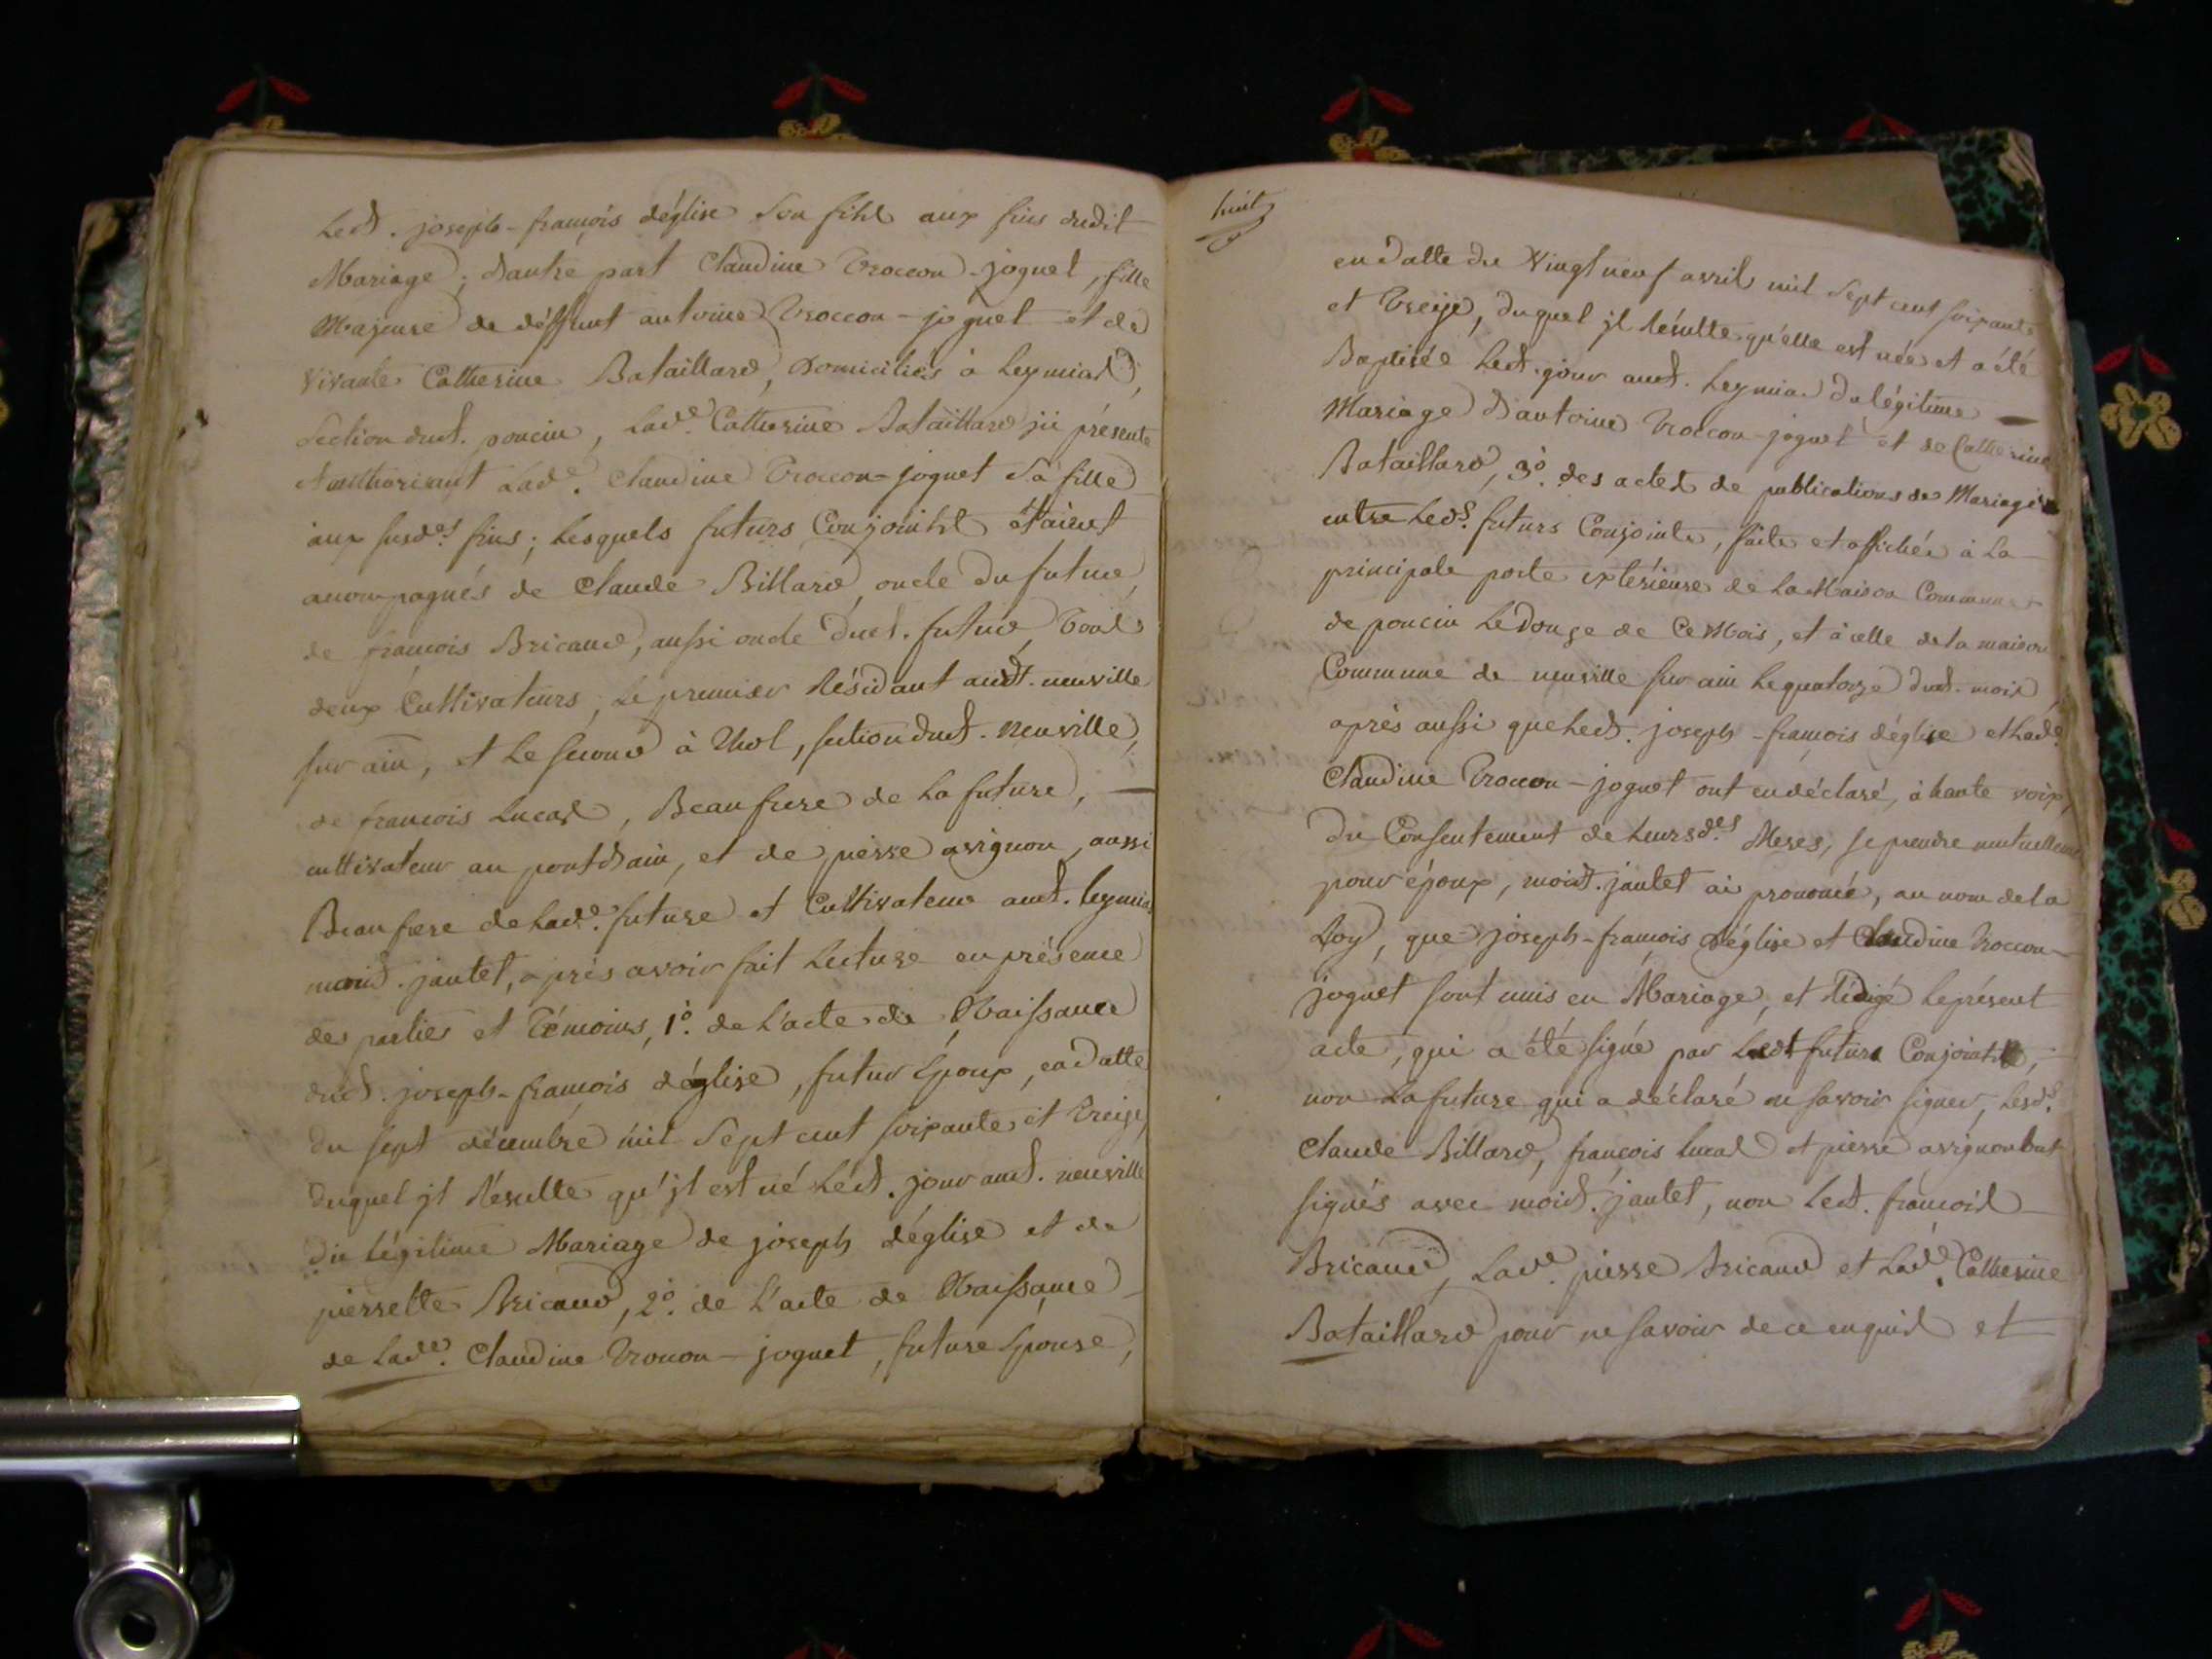 Led. joseph-françois déglise Son fihs aux fins dudit
Mariage; dautre part Claudine Troccon-joguet, fille
Majeure de déffunt antoine Troccon-joguet et de
vivante Catherine Bataillard, Domiciliés à Leymiat,
Section dud. poncin, Lade. Catherine Bataillard ji présente
Authorisant Lade. Claudine Troccon-joguet Sa fille
aux susdes. fins; Lesquels futurs Conjoints étaient
accompagnés de Claude Billard, oncle du futur,
de françois Bricaud, aussi oncle dud. futur, Touts
deux Cultivateurs, Le premier Résidant audt. neuville
sur ain, et Le second à Thol, section dud. Neuville,
de françois Lucas, Beaufrere de La future, —
cultivateur au pontdain, et de pierre avignon, aussi
Beaufrere de Lade. future et Cultivateur aud. leymiat
moid. jantet, après avoir fait Lecture en présence
des parties et Témoins, 1o. de L'acte de Naissance
dud. joseph-françois déglise, futur Epoux, en datte
du sept décembre mil Sept cent soixante et Treize,
duquel jl Résulte qu'jl est né Led. jour aud. neuville
du légitime Mariage de joseph déglise et de
pierrette Bricaud, 2o. de L'acte de Naissance
de Lade. Claudine Troccon-joguet, future Epouse,
huit
en datte du Vingt neuf avril mil Sept cent soixante
et Treize, duquel jl Résulte qu'elle est née et a été
Baptisée Led. jour aud. Leymiat du légitime —
Mariage d'antoine Troccon-joguet et de Catherine
Bataillard, 3o. des actes de publications de Mariage
entre Leds. futurs Conjoints, faite et affichée à La
principale porte extérieure de La Maison Commune
de poncin Le Douze de Ce Mois, et à celle de la maison
Commune de neuville sur ain Le quatorze dud. mois
après aussi que Led. joseph-françois déglise et Lade.
Claudine Troccon-joguet ont eu déclaré, à haute voix,
du Consentement de Leursdes. Meres, se prendre mutuellement
pour époux, moid. jantet ai prononcé, au nom de la
Loy, que joseph-françois déglise et Claudine Troccon-
joguet sont unis en Mariage, et Rédigé Le présent
acte, qui a été signé par Led. futur Conjoint,
non La future qui a déclaré ne savoir signer, Lesds.
Claude Billard, françois Lucas et pierre avignon ont
signés avec moid. jantet, non Led. françois
Bricaud, Lade. pierre Bricaud et Lade. Catherine
Bataillard pour ne savoir de ce enquis et